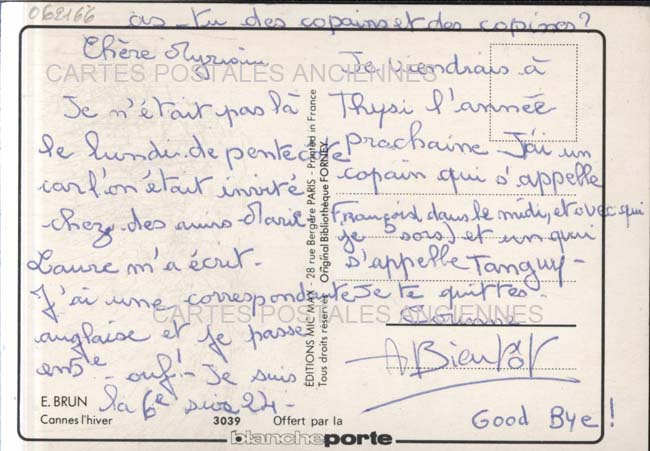 062166
as-tu des copains et des copines?
Chère Myriam
CARTES POSTALES ANCIENNES
Je n'était pas là
le lundi de pentecôte
car l'on était invité
chez des amis. Marie
Laure m'a écrit.
J'ai une correspondante
anglaise et je passe
en 5e - ouf! - Je suis
la 6e sur 24.
Je viendrais à
Thysi l'année
prochaine. J'ai un
copain qui s'appelle
François (dans le midi, et avec qui
je sors) et un qui
s'appelle Tanguy -
Je te quittes.
CARTES POSTALES ANCIENNES
A Bientôt
Good Bye!
ÉDITIONS MIC MAX - 28 rue Bergère PARIS - Printed in France
Tous droits réservés Original Bibliothèque FORNEY
E. BRUN
Cannes l'hiver
3039 Offert par la
blancheporte